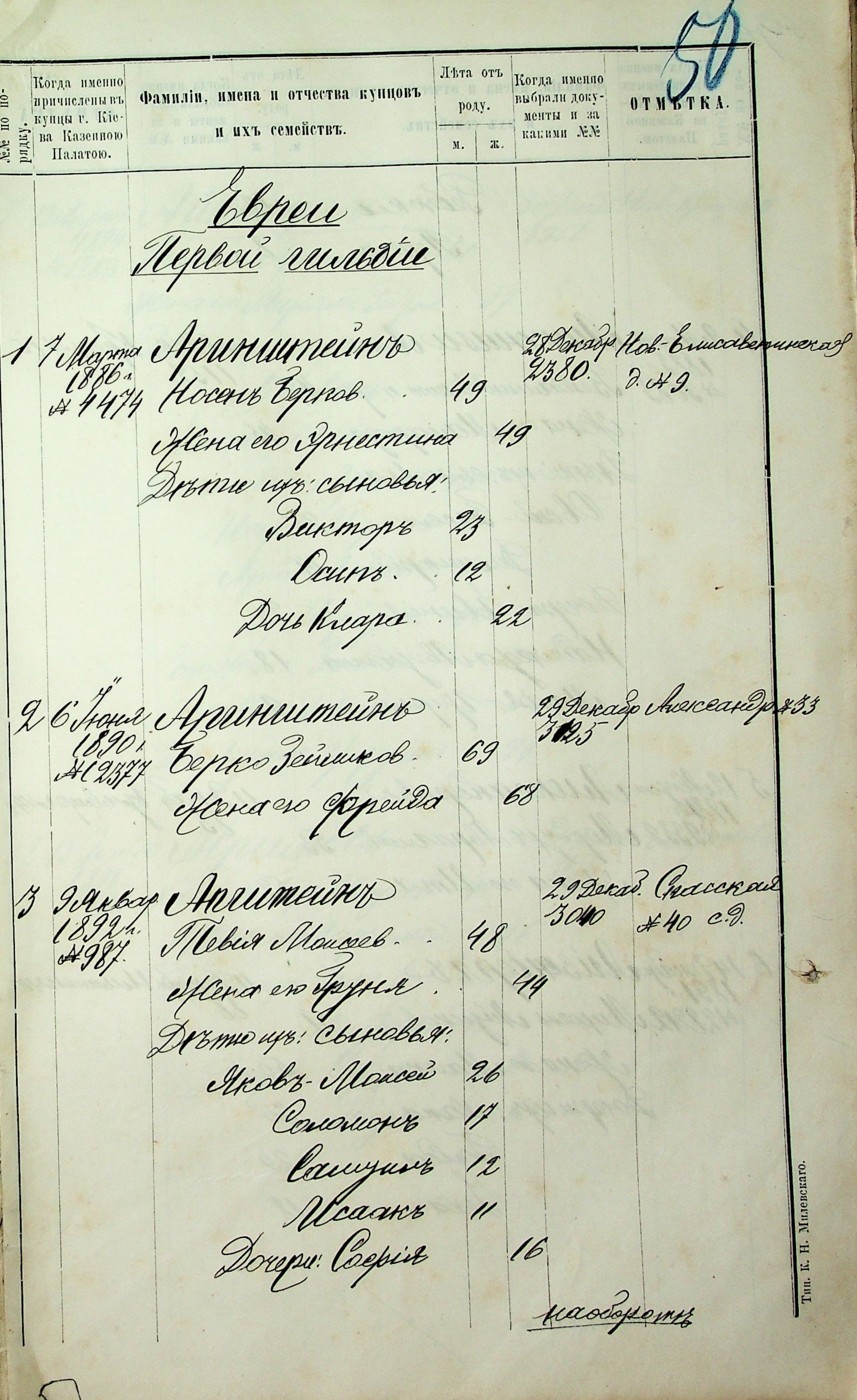 50
№№ по порядку.
Когда именно
причислены въ
купцы г. Кіева
Казенною
Палатою.
Фамиліи, имена и отчества купцовъ
и ихъ семействъ.
Лѣта отъ
роду.
м.
ж.
Когда именно
выбрали документы
и за
какими №№
ОТМѢТКА.
Евреи
Первой гильдіи
1 7 Марта Аринштейнъ 28 Декабр Нов-Елисаветинская
1886 г. 2380. д. № 9.
№ 4474 Носенъ Берков. 49
Жена его Эрнестина 49
Дѣти ихъ: сыновья:
Викторъ 23
Осипъ. 12
Дочь Клара. 22
2 6 Іюня Аринштейнъ 29 Декабр Александр № 33
1890 г. 3125
№ 12377 Берко Зейликов. 69
Жена его Фрейда 68
3 9 Январ Апштейнъ 29 Декаб. Спасская
1892 г. 3040 № 40 с. д.
№ 987. Тевія Моисеев. 48
Жена его Груня 44
Дѣти ихъ: сыновья:
Яковъ-Моисей 26
Соломонъ 17
Самуилъ 12
Исаакъ 11
Дочери: Софія 16
наоборотѣ
Тип. К. Н. Милевскаго.